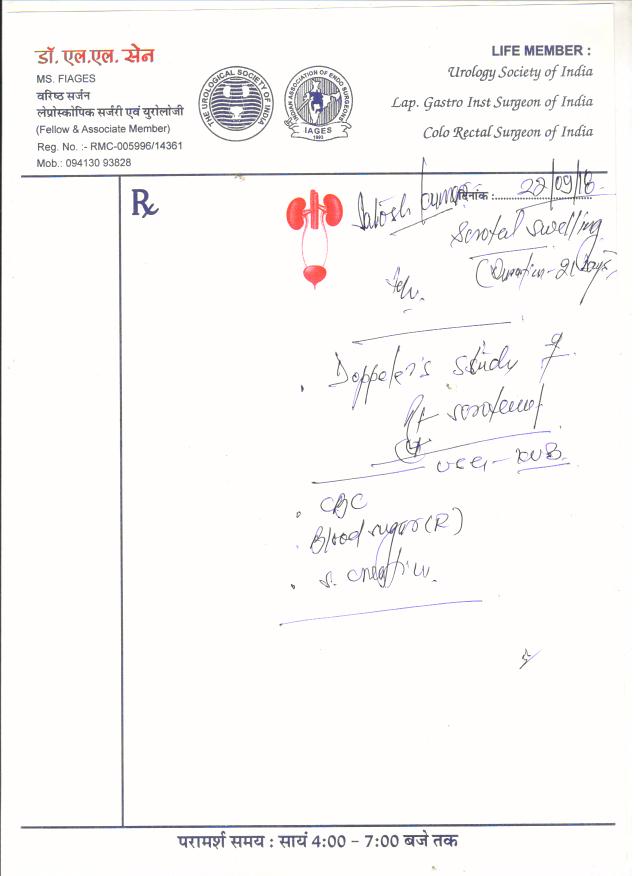 डॉ. एल.एल. सेन
MS. FIAGES
वरिष्ठ सर्जन
लेप्रोस्कोपिक सर्जरी एवं युरोलोजी
(Fellow & Associate Member)
Reg. No. :- RMC-005996/14361
Mob.: 094130 93828
THE UROLOGICAL SOCIETY OF INDIA
INDIAN ASSOCIATION OF ENDO SURGEONS
IAGES
1993
LIFE MEMBER :
Urology Society of India
Lap. Gastro Inst Surgeon of India
Colo Rectal Surgeon of India
Rx
दिनांक : 22/09/18
Satosh Kumar
Scrotal swelling
(Duration - 2 Days
Adv.
Doppeler's study of
Rt scrotum
USG - KUB
CBC
Blood sugar (R)
S. Creatinin
परामर्श समय : सायं 4:00 - 7:00 बजे तक